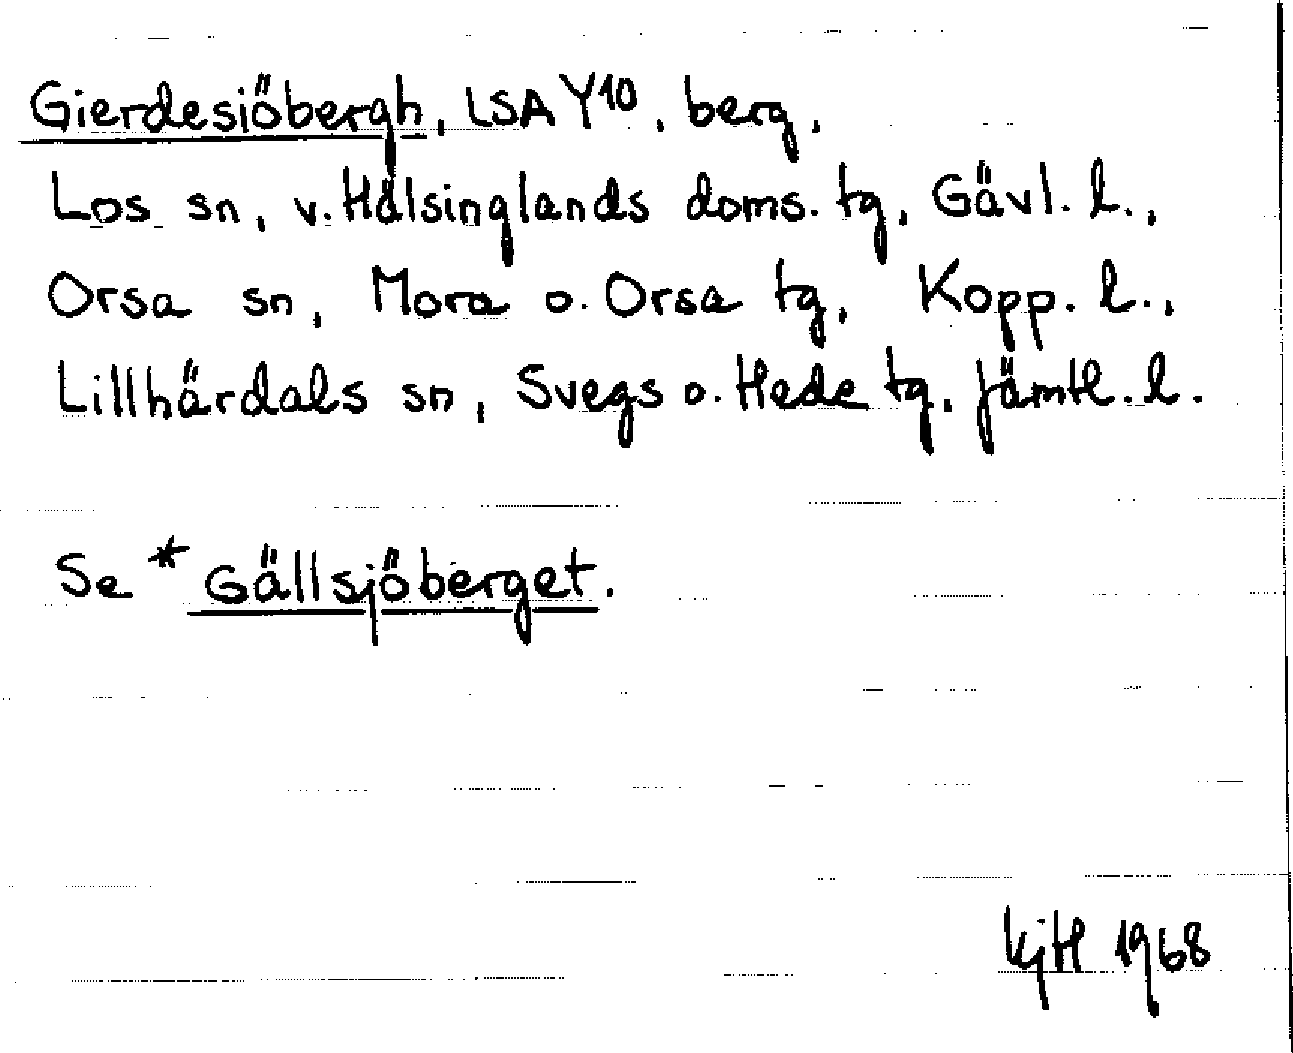 Gierdesiöbergh, LSA Y10, berg,
Los sn, v. Hälsinglands doms. tg, Gävl. l.,
Orsa sn, Mora o. Orsa tg, Kopp. l.,
Lillhärdals sn, Svegs o. Hede tg, Jämtl. l.
Se * Gällsjöberget.
KjH 1968